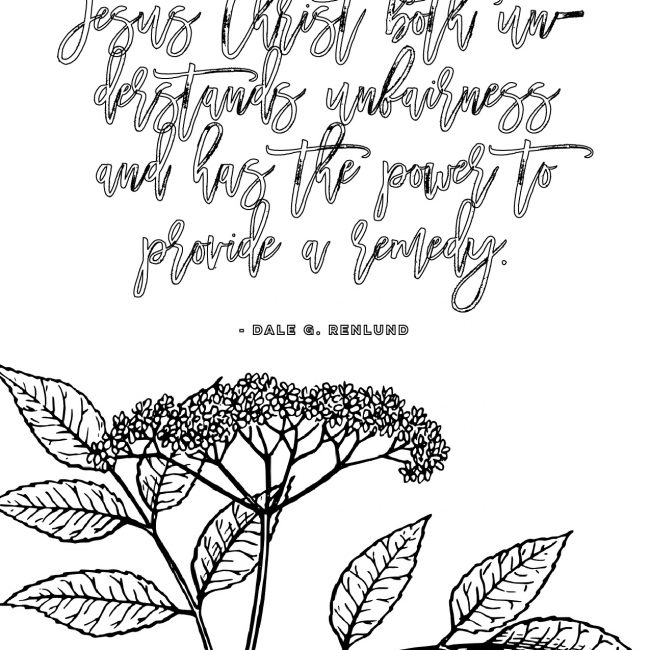 Jesus Christ both un-
derstands unfairness
and has the power to
provide a remedy.
- DALE G. RENLUND